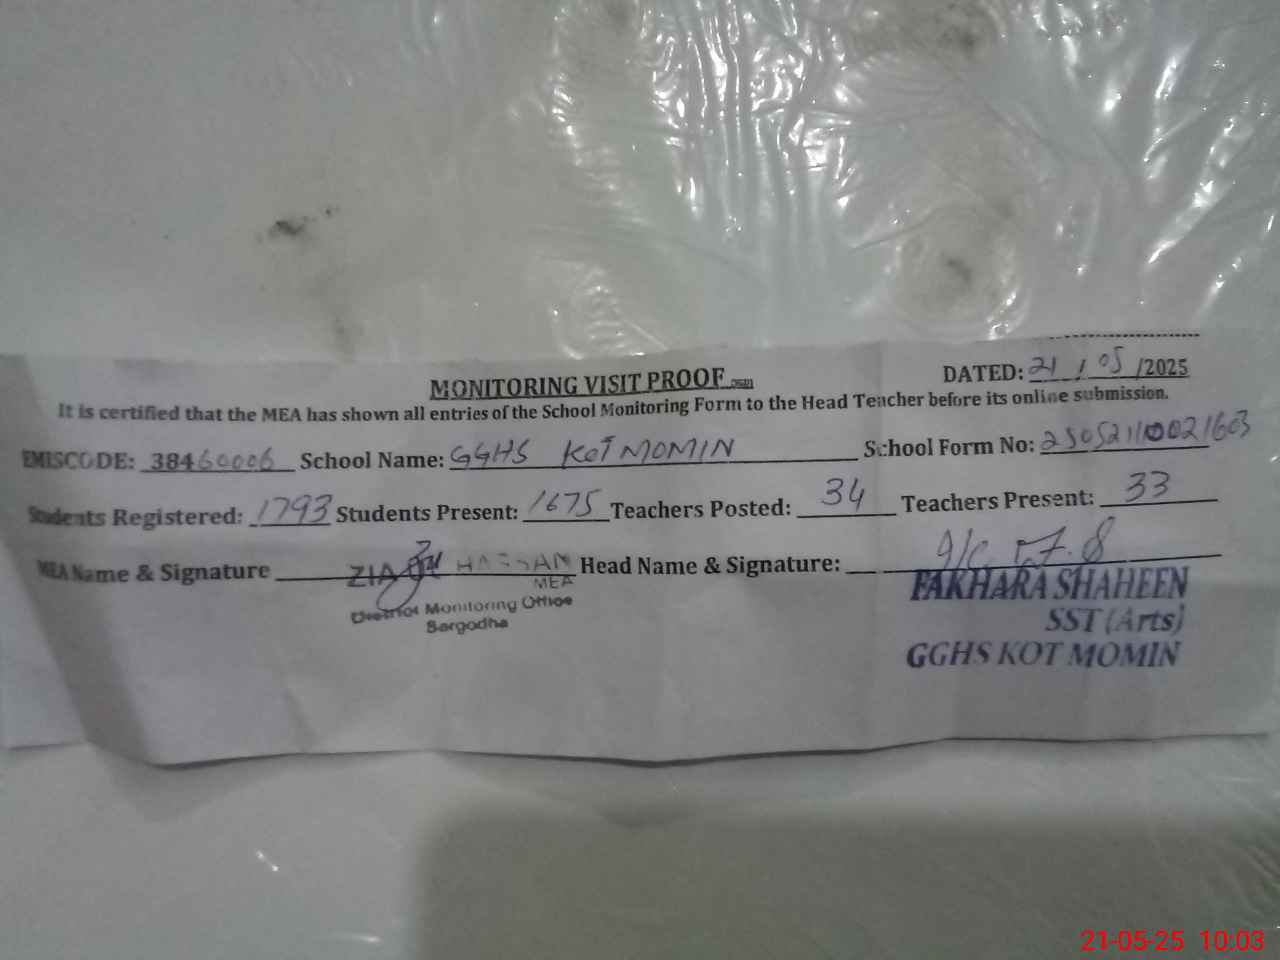 DATED: 21 / 05 /2025
MONITORING VISIT PROOF
It is certified that the MEA has shown all entries of the School Monitoring Form to the Head Teacher before its online submission.
EMISCODE: 38460006 School Name: GGHS KOT MOMIN School Form No:
Students Registered: 1793 Students Present: 1675 Teachers Posted: 34 Teachers Present: 33
MEA Name & Signature ZIA HASSAN Head Name & Signature:
MEA
District Monitoring Office
Sargodha
FAKHARA SHAHEEN
SST (Arts)
GGHS KOT MOMIN
21-05-25 10:03